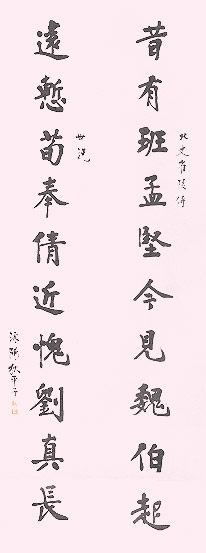 昔有班孟堅今見魏伯起
北史崔陵傳
遠慙荀奉倩近愧劉真長
世說